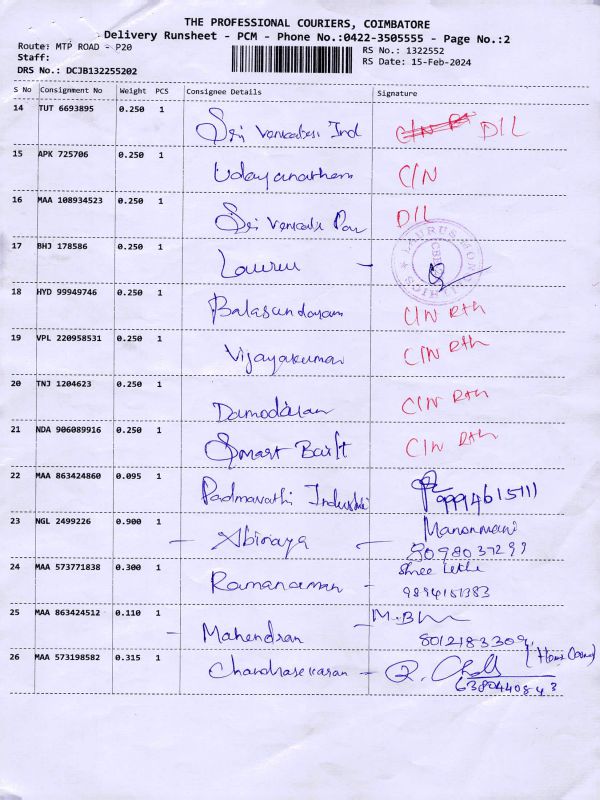 THE PROFESSIONAL COURIERS, COIMBATORE
Delivery Runsheet - PCM - Phone No.:0422-3505555 - Page No.:2
Route: MTP ROAD - P20
RS No.: 1322552
Staff:
RS Date: 15-Feb-2024
DRS No.: DCJB132255202
S No Consignment No Weight PCS Consignee Details Signature
14 TUT 6693895 0.250 1 Sri Venkades Ind C/N D/L
15 APK 725706 0.250 1 Udayanatham C/N
16 MAA 108934523 0.250 1 Sri Venkades D/L
17 BHJ 178586 0.250 1 Laurus - LAURUS
18 HYD 99949746 0.250 1 Balasundaram C/N Rth
19 VPL 220958531 0.250 1 Vijayakumar C/N Rth
20 TNJ 1204623 0.250 1 Damodaran C/N Rth
21 NDA 906089916 0.250 1 Smart C/N Rth
22 MAA 863424860 0.095 1 Padmavathi Industri 9994615111
23 NGL 2499226 0.900 1 - Abinaya - Manonmani
8098037299
24 MAA 573771838 0.300 1 Ramanaman - Shree
9894151383
25 MAA 863424512 0.110 1 - Mahendran M.B
8012183309
26 MAA 573198582 0.315 1 Chandrasekaran - R.
6380440843